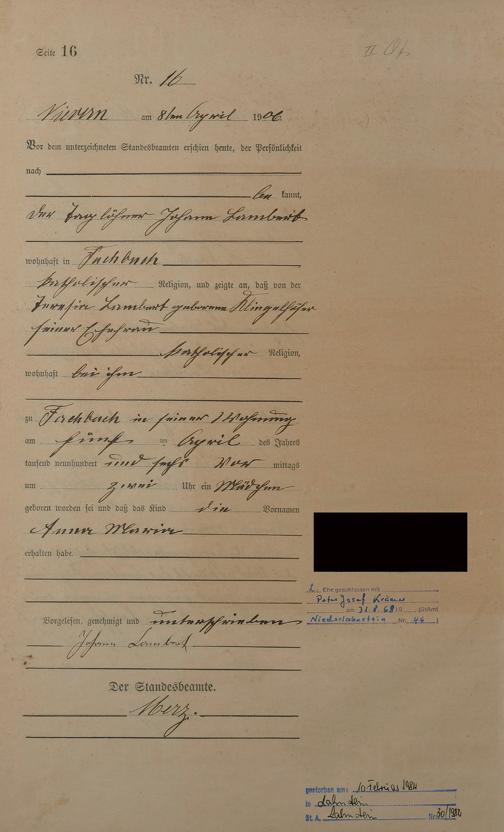 Seite 16
Nr. 16
Nievern am 8ten April 1906
Vor dem unterzeichneten Standesbeamten erschien heute, der Persönlichkeit
nach
be kannt,
der Taglöhner Johann Lambert
wohnhaft in Fachbach
katholischer Religion, und zeigte an, daß von der
Theresia Lambert geborene Klingelhöfer
seiner Ehefrau
katholischer Religion,
wohnhaft bei ihm
zu Fachbach in seiner Wohnung
am fünf ten April des Jahres
tausend neunhundert und sechs Vor mittags
um zwei Uhr ein Mädchen
geboren worden sei und daß das Kind die Vornamen
Anna Maria
erhalten habe.
Vorgelesen, genehmigt und unterschrieben
Johann Lambert
Der Standesbeamte.
Merz.
2. Ehe geschlossen mit
Peter Josef
am 31.8.6819 StAmt
Niederlahnstein Nr. 46
gestorben am: 10. Februar 1982
in Lahnstein
St. A. Lahnstein Nr. 30/1982